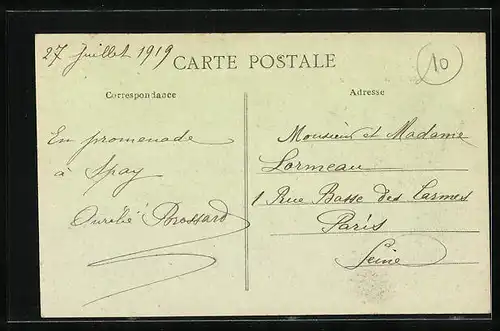 27 Juillet 1919
CARTE POSTALE
10
Correspondance
En promenade
à Spay
Aurélie Brossard
Adresse
Monsieur et Madame
Lormeau
1 Rue Basse des Carmes
Paris
Seine